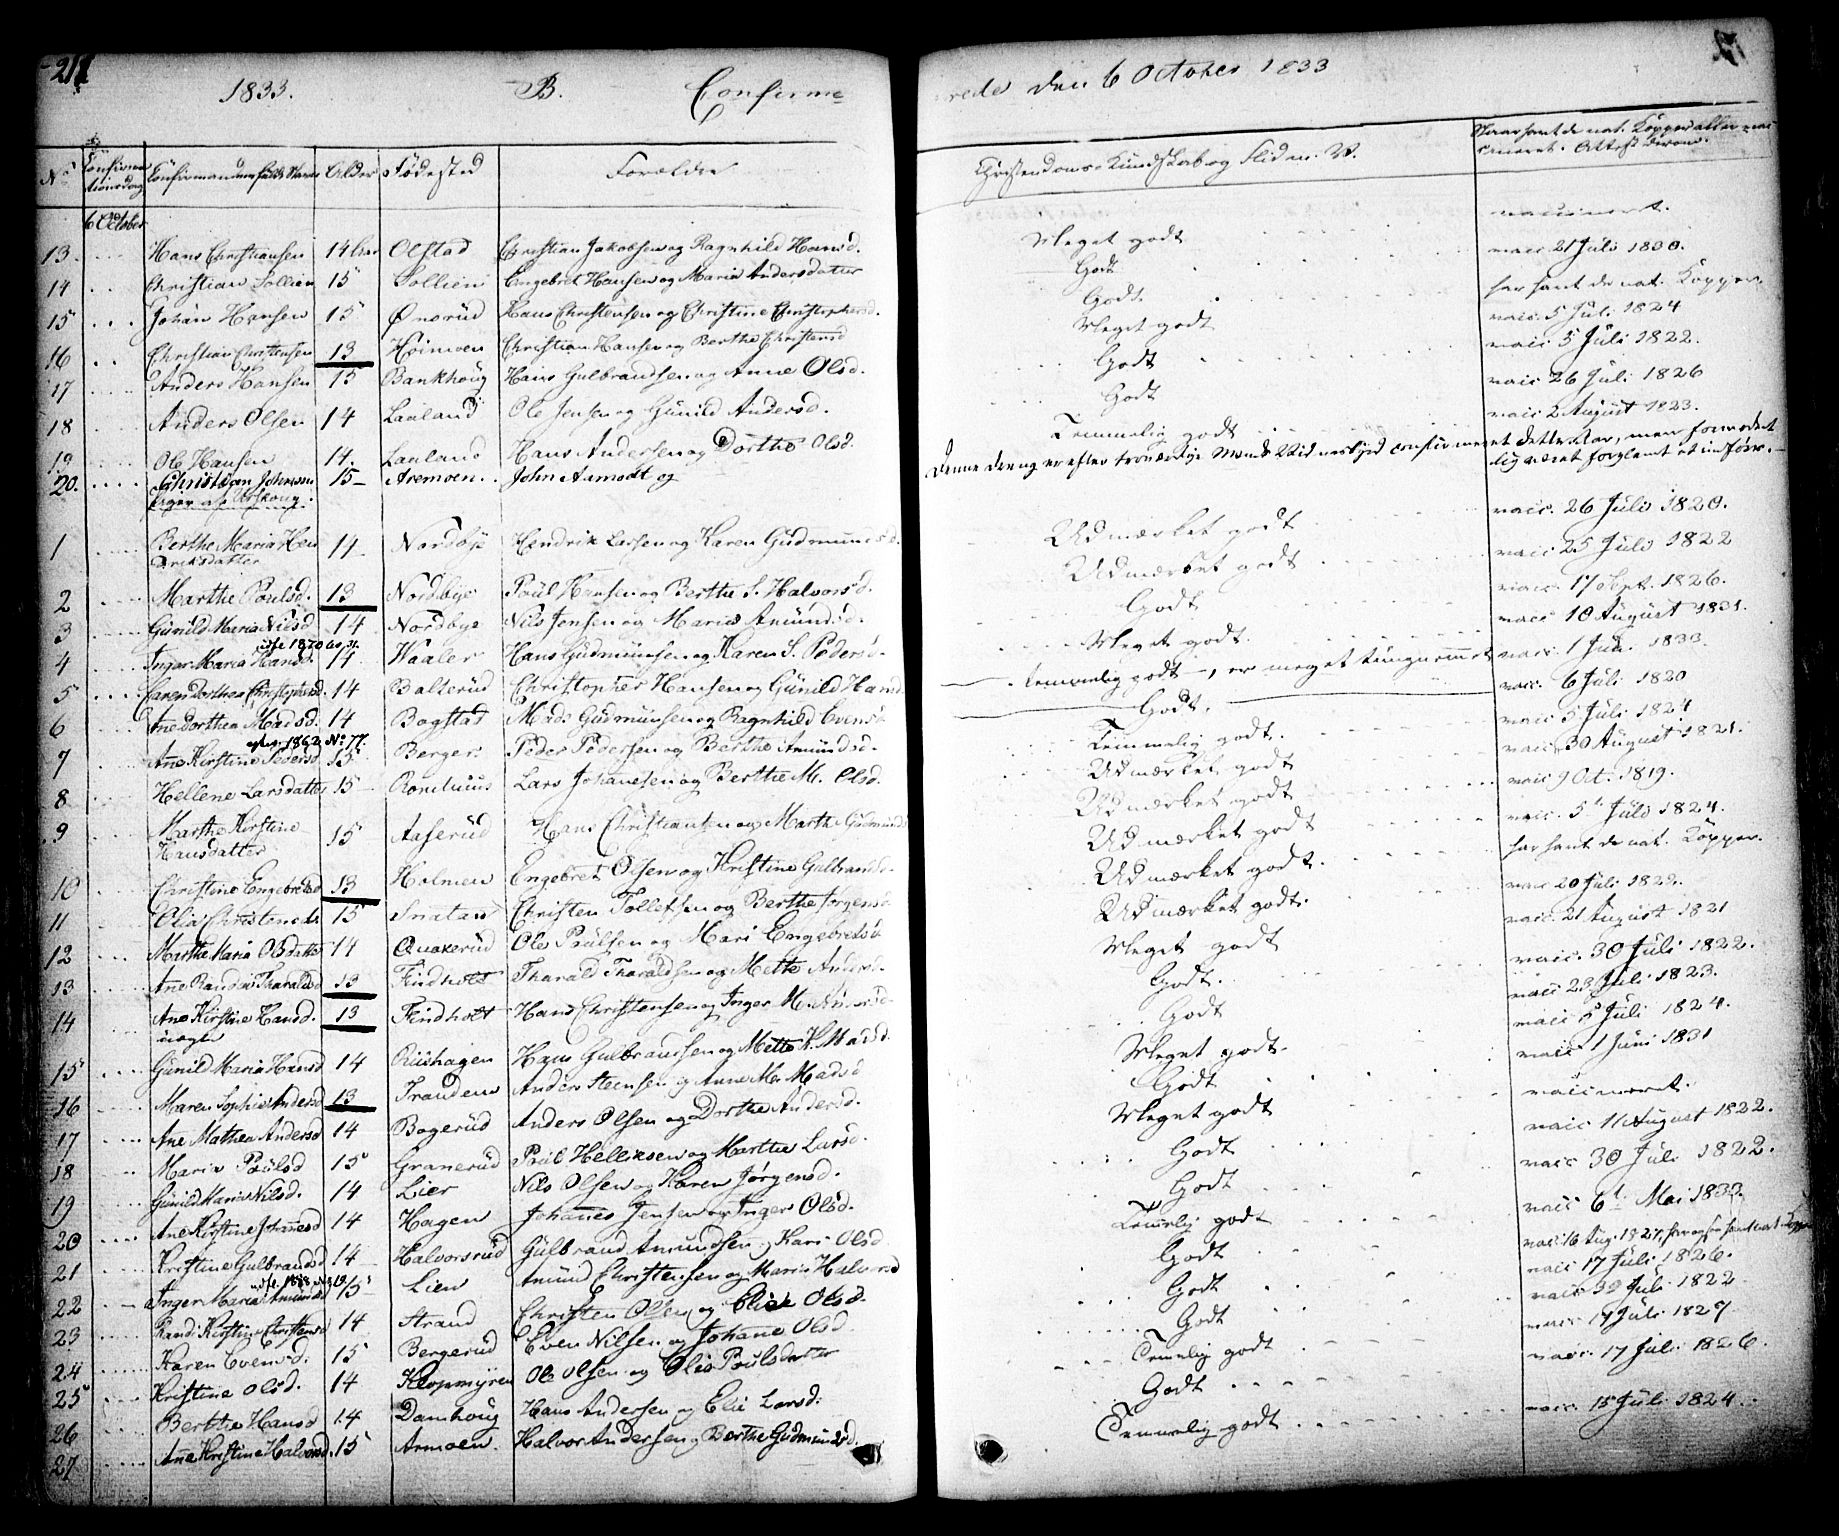 211
1833. B. Confirme-
rede den 6 October 1833
No Confirmationsdag Confirmandernes fulde Navne Alder Fødested Forældre
Christendoms-Kundskab og Flid m. V. Naar havt de nat. Kopper eller vaccineret. Attest derom.
6 October
13. Hans Christiansen 14 Aar Olstad Christian Jakobsen og Ragnhild Hansd. Meget godt vaccineret.
14 Christian Sollien 15 Sollien Engebret Hansen og Maria Andersdatter Godt vacc. 21 Juli 1830.
15 Johan Hansen 15 Hans Christensen og Christine Christophersd. Godt har havt de nat. Kopper.
16 Christian Christensen 13 Christian Hansen og Berthe Christensd Meget godt vacc. 5 Juli 1824
17 Anders Hansen 15 Bankhoug Hans Gulbrandsen og Anne Olsd. Godt vacc. 5 Juli 1822.
18 Anders Olsen 14 Laaland Ole Jensen og Gunild Andersd. Godt vacc. 26 Juli 1826
19 Ole Hansen 14. Laaland Hans Andersen og Dorthe Olsd. Temmelig godt vacc. 2 August 1823.
20. Christian Johnsen 15 Aremoen John Aamodt og Denne Dreng er efter troværdige Mænds Vidnesbyrd confirmeret dette Aar, men formodent
lig været forglemt at indføre.
1 Berthe Maria Hen
driksdatter 14 Nordbye Hendrik Larsen og Karen Gudmundsd. Udmærket godt vacc. 26 Juli 1820.
2 Marthe Poulsd. 13 Nordbye Poul Hansen og Berthe S. Halvorsd. Udmærket godt vacc. 25 Juli 1822
3 Gunild Maria Nilsd 14 Nordbye Nils Jensen og Maria Amundsd. Godt vacc. 17 Sept. 1826.
4 Inger Maria Hansd. 14 Waaler Hans Gudmunsen og Karen S. Pedersd. Meget godt. vacc. 10 August 1831.
5 Caren Dorthea Christophersd. 14 Balterud Christopher Hansen og Gunild Hansd. temmelig godt -, er meget tungnemmet vacc. 1 1833.
6 Ane Dorthea Madsd. 14 Bogstad Mads Gudmunsen og Ragnhild Evensd Godt. vacc. 6 Juli 1820
1862 No 77.
7 Ane Kirstine Pedersd 15 Berger Peder Pedersen og Berthe Amundsd. Temmelig godt. vacc. 5 Juli 1824
8 Hellene Larsdatter 15 Lars Johannesen og Berthe M. Olsd. Udmærket godt vacc. 30 August 1821.
9 Marthe Kirstine
Hansdatter 15 Aaserud Hans Christiansen og Marthe Gudmundsd Udmærket godt vacc. 9 Oct. 1819.
10 Christine Engebretsd 13 Holmen Engebret Olsen og Kristine Gulbrandsd. Udmærket godt vacc. 5te Juli 1824.
11 Olia Christensd. 15 Snatan Christen Tollefsen og Berthe Jørgensd Udmærket godt. har havt de nat. Kopper.
12 Marthe Maria Olsdatter 14 Quakerud Ole Poulsen og Mari Engebretsd Udmærket godt. vacc. 20 Juli 1822.
13 Ane Randi Tharaldsd 13 Findholt Tharald Tharaldsen og Mette Andersd. Meget godt vacc. 21 August 1821
14 Ane Kirstine Hansd. 13 Findholt Hans Christensen og Inger M. Godt. vacc. 30 Juli 1822.
15 Gunild Maria Hansd 14 Riishagen Hans Gulbrandsen og Mette K. Madsd. Godt vacc. 23 Juli 1823.
16 Maren Sophie Andersd 13 Tranden Anders Steensen og Anne M. Madsd Meget godt. vacc. 5 Juli 1824.
17 Ane Mathea Andersd 14 Bogerud Anders Olsen og Dorthe Andersd. Godt vacc. 1 Juni 1831
18 Maria Poulsd 15 Granerud Poul Helliksen og Marthe Larsd. Meget godt vaccineret.
19 Gunild Maria Nilsd. 14 Lier Nils Olsen og Karen Jørgensd. Godt vacc. 11 August 1822.
20 Ane Kirstine Johannesd 14 Hagen Johannes Jensen og Inger Olsd. Godt vacc. 30 Juli 1822.
21 Kirstine Gulbrandsd 14 Halvorsrud Gulbrand Amundsen og Kari Olsd. Temmelig godt vacc. 6te Mai 1833.
22 Inger Maria Amundsd 15 Lien Amund Christensen og Maria Halvorsd Godt vacc. 16 Aug. 1827, har og havt nat. Kopper
23 Randi Kirstine Christensd 14 Strand Christen Olsen og Olsd. Godt vacc. 17 Juli 1826.
24 Karen Evensd. 15 Bergerud Even Nilsen og Johane Olsd. Godt vacc. 30 Juli 1822
25 Kristine Olsd. 14 Ole Olsen og Olia Poulsdatter Temmelig godt vacc. 19 Juli 1827
26 Berthe Hansd 14 Damhoug Hans Andersen og Elie Larsd. Godt vacc. 17 Juli 1826.
27 Ane Kirstine Halvorsd. 15 Armoen. Halvor Andersen og Berthe Gudmundsd. Temmelig godt vacc. 15 Juli 1824.